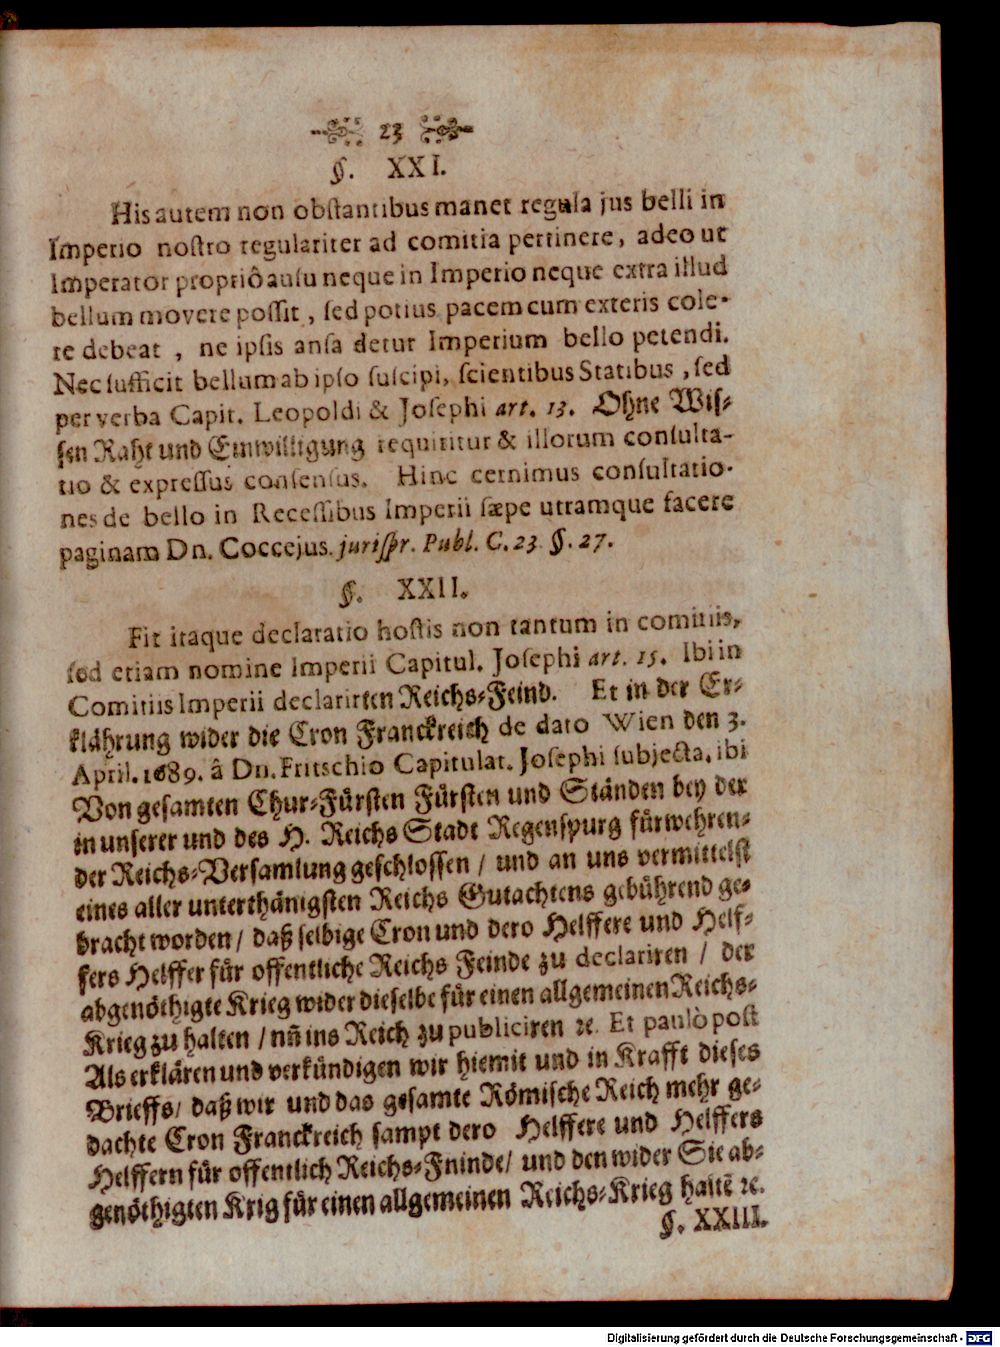 23
§. XXI.
His autem non obstantibus manet regula jus belli in
Imperio nostro regulariter ad comitia pertinere, adeo ut
Imperator propriô ausu neque in Imperio neque extra illud
bellum movere possit, sed potius pacem cum exteris cole-
re debeat, ne ipsis ansa detur Imperium bello petendi.
Nec sufficit bellum ab ipso suscipi, scientibus Statibus, sed
per verba Capit. Leopoldi & Josephi art. 13. Ohne Wis-
sen Raht und Einwilligung requiritur & illorum consulta-
tio & expressus consensus. Hinc cernimus consultatio-
nes de bello in Recessibus Imperii sæpe utramque facere
paginam Dn. Coccejus. jurispr. Publ. C. 23. §. 27.
§. XXII.
Fit itaque declaratio hostis non tantum in comitiis,
sed etiam nomine Imperii Capitul. Josephi art. 15. Ibi in
Comitiis Imperii declarirten Reichs-Feind. Et in der Er-
klährung wider die Cron Franckreich de dato Wien den 3.
April. 1689. â Dn. Fritschio Capitulat. Josephi subjecta, ibi
Von gesamten Chur-Fürsten Fürsten und Ständen bey der
in unserer und des H. Reichs Stadt Regenspurg fürwehren-
der Reichs-Versamlung geschlossen / und an uns vermittelst
eines aller unterthänigsten Reichs Gutachtens gebührend ge-
bracht worden / daß selbige Cron und dero Helffere und Helf-
fers Helffer für offentliche Reichs Feinde zu declariren / der
abgenöthigte Krieg wider dieselbe für einen allgemeinen Reichs-
Krieg zu halten / nun̄ ins Reich zu publiciren ꝛc. Et paulò post
Als erklären und verkündigen wir hiemit und in Krafft dieses
Brieffs / daß wir und das gesamte Römische Reich mehr ge-
dachte Cron Franckreich sampt dero Helffere und Helffers
Helffern für offentlich Reichs-Fninde / und den wider Sie ab-
genöthigten Krig für einen allgemeinen Reichs-Krieg haltē ꝛc.
§. XXIII.
Digitalisierung gefördert durch die Deutsche Forschungsgemeinschaft - DFG